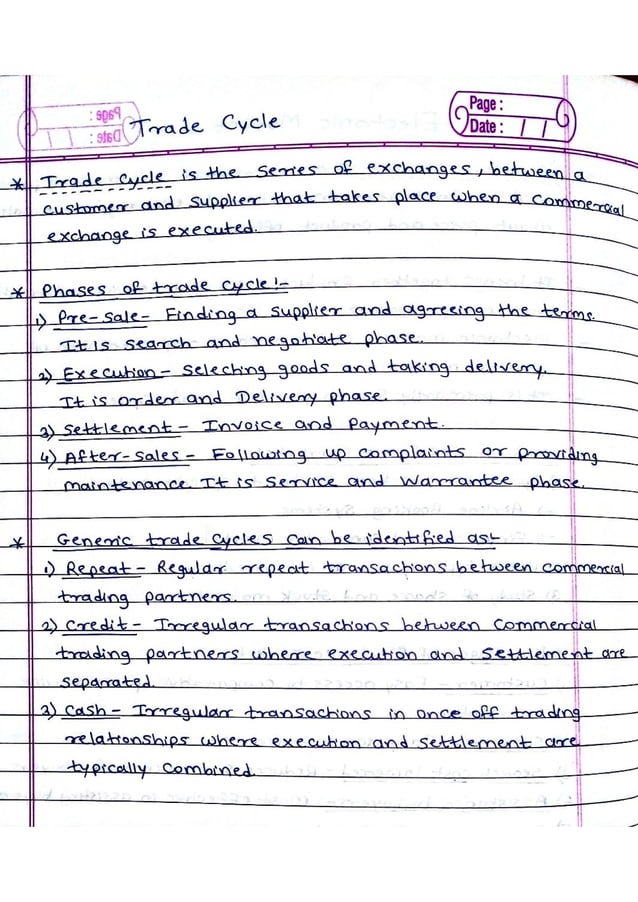 Page :
Date :   /   /
Trade Cycle
* Trade Cycle is the series of exchanges, between a
customer and supplier that takes place when a commercial
exchange is executed.
* Phases of trade cycle:-
1) Pre-sale - Finding a supplier and agreeing the terms.
It is search and negotiate phase.
2) Execution - selecting goods and taking delivery.
It is order and Delivery phase.
3) Settlement - Invoice and Payment.
4) After-sales - Following up complaints or providing
maintenance. It is Service and Warrantee phase.
* Generic trade cycles can be identified as:-
1) Repeat - Regular repeat transactions between commercial
trading partners.
2) Credit - Irregular transactions between Commercial
trading partners where execution and settlement are
separated.
3) Cash - Irregular transactions in once off trading
relationships where execution and settlement are
typically combined.